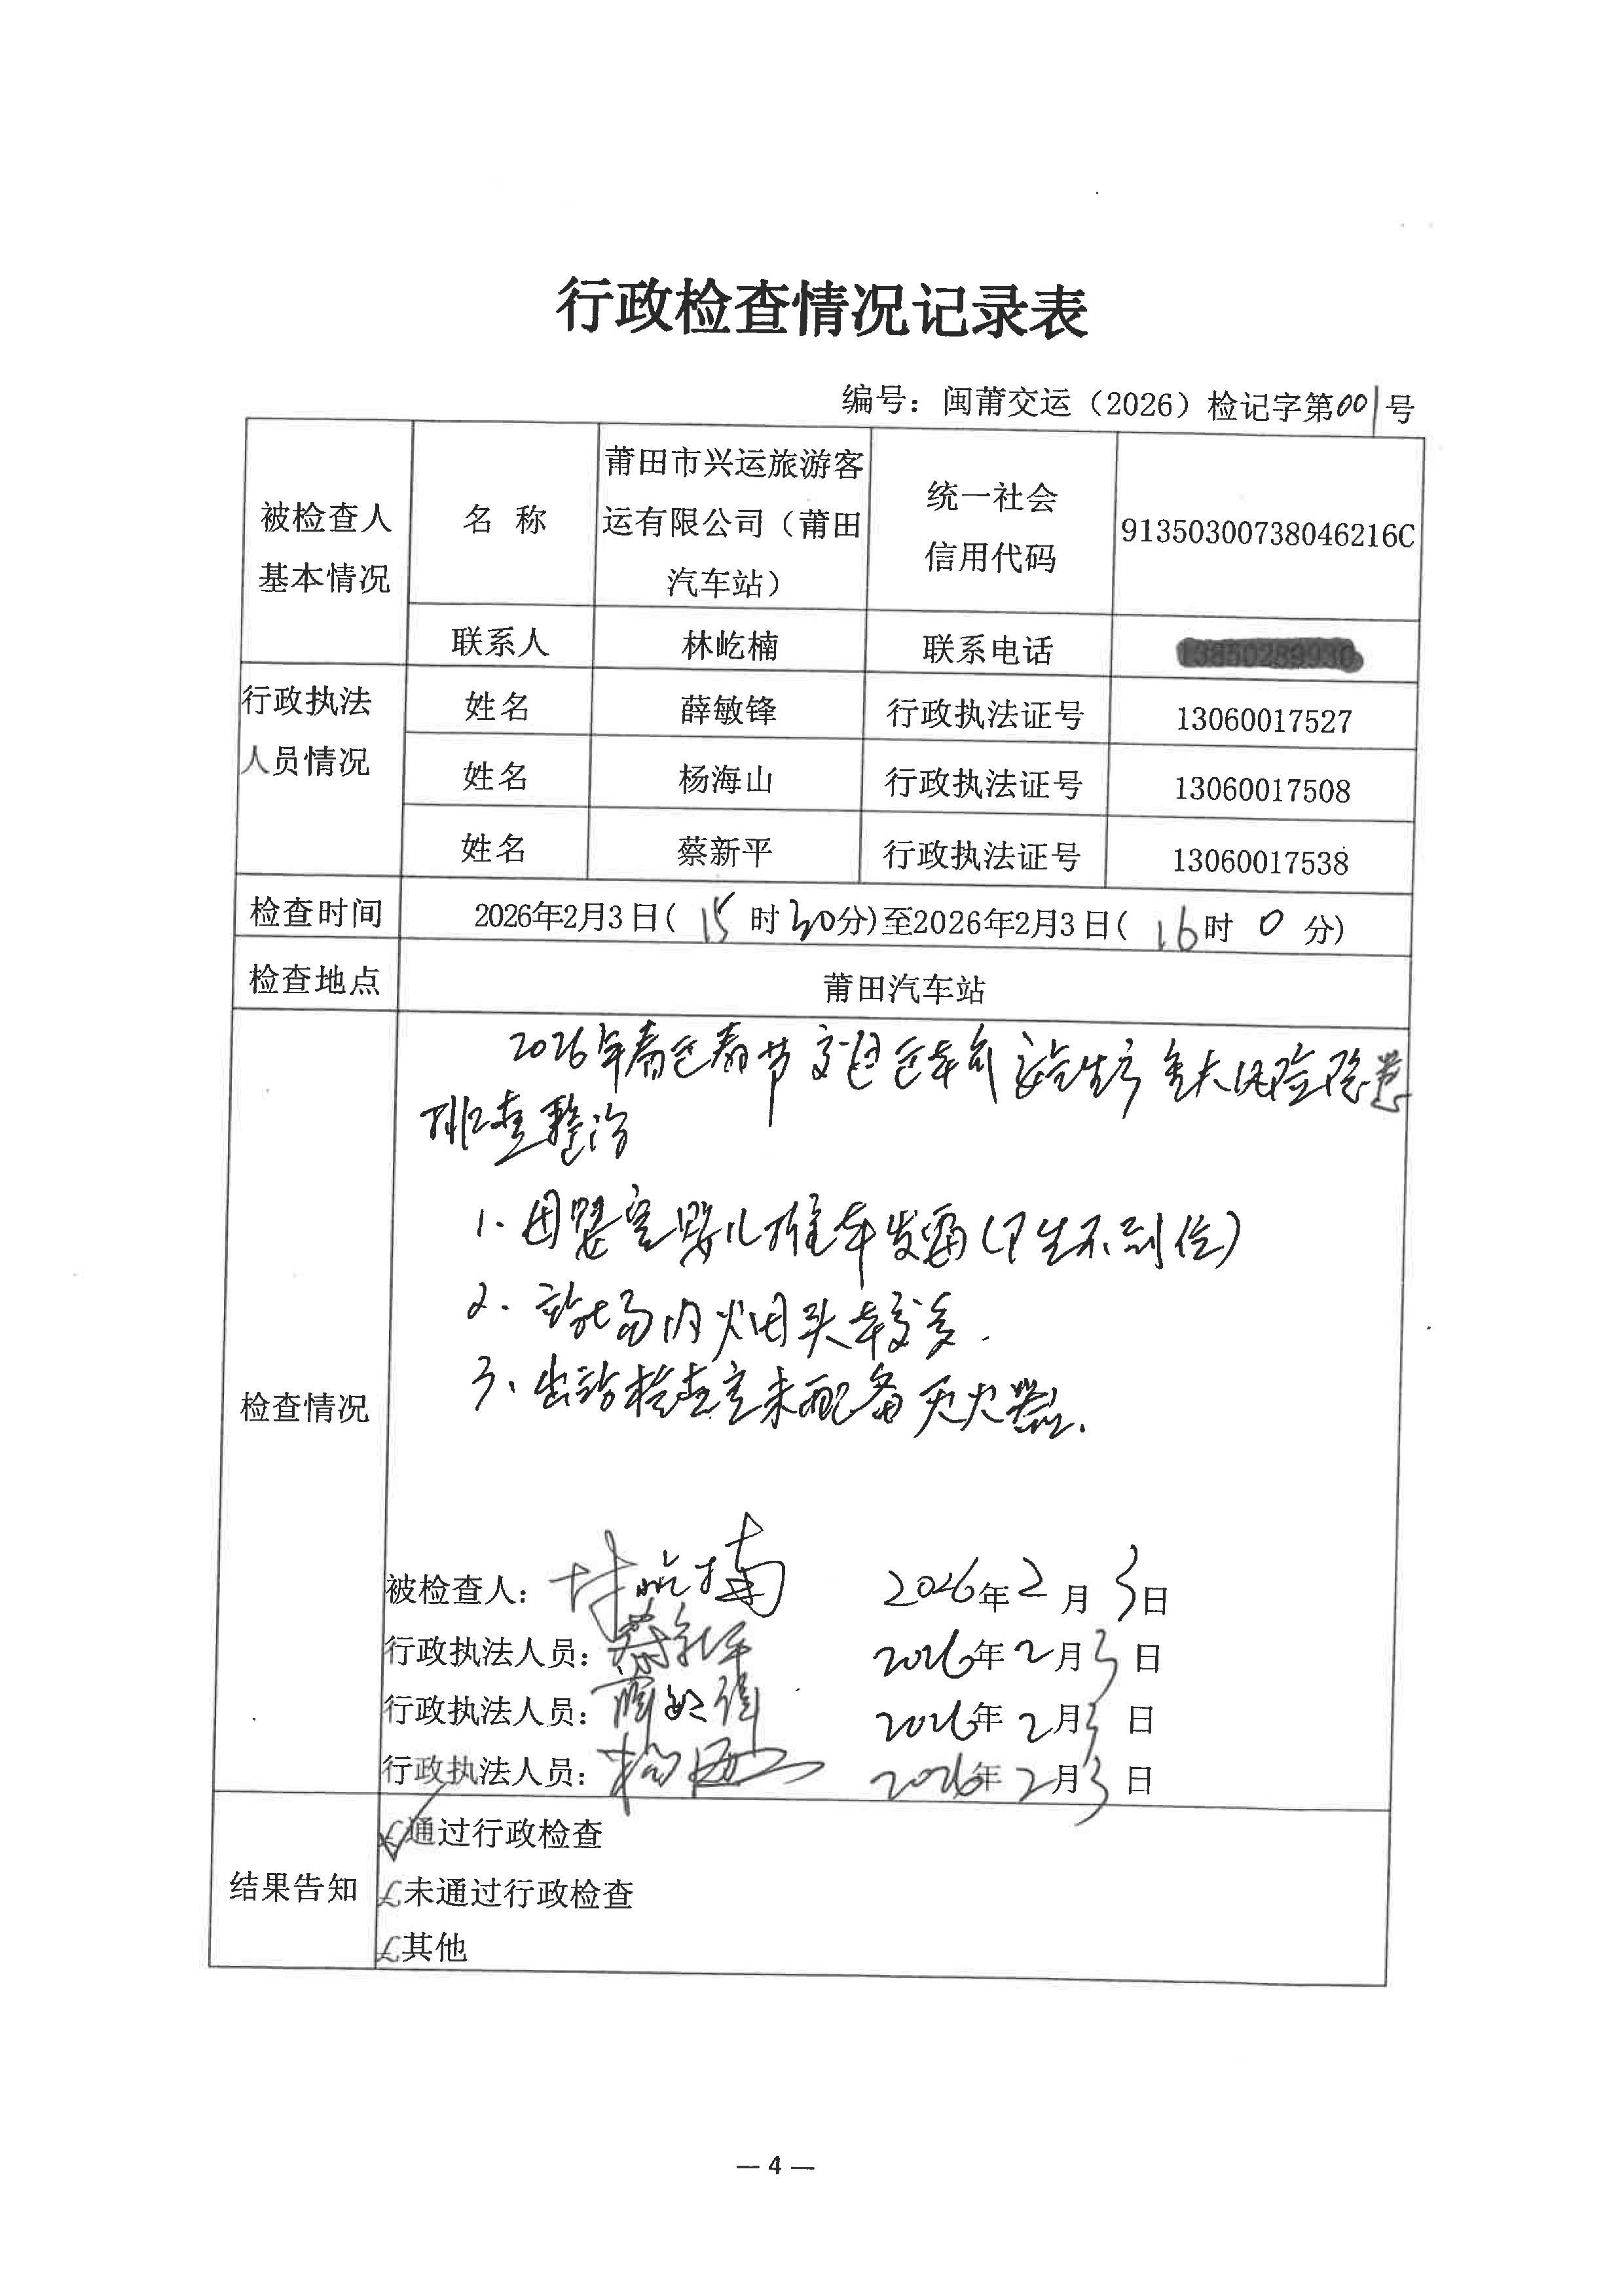 行政检查情况记录表
编号：闽莆交运（2026）检记字第001号
被检查人
基本情况
名 称
莆田市兴运旅游客
运有限公司（莆田
汽车站）
统一社会
信用代码
91350300738046216C
联系人 林屹楠 联系电话
行政执法
人员情况
姓名 薛敏锋 行政执法证号 13060017527
姓名 杨海山 行政执法证号 13060017508
姓名 蔡新平 行政执法证号 13060017538
检查时间 2026年2月3日( 15时30分)至2026年2月3日( 16时 0 分)
检查地点 莆田汽车站
检查情况
2026年春运春节交通运车 安全生产重大风险隐患
排查整治
1. 母婴室婴儿推车发霉(卫生不到位)
2. 站场内烟头较多.
3、出站检查室未配备灭火器.
被检查人：林屹楠 2026年2月3日
行政执法人员：蔡新平 2026年2月3日
行政执法人员：薛敏锋 2026年2月3日
行政执法人员：杨海山 2026年2月3日
结果告知
£通过行政检查
£未通过行政检查
£其他
— 4 —